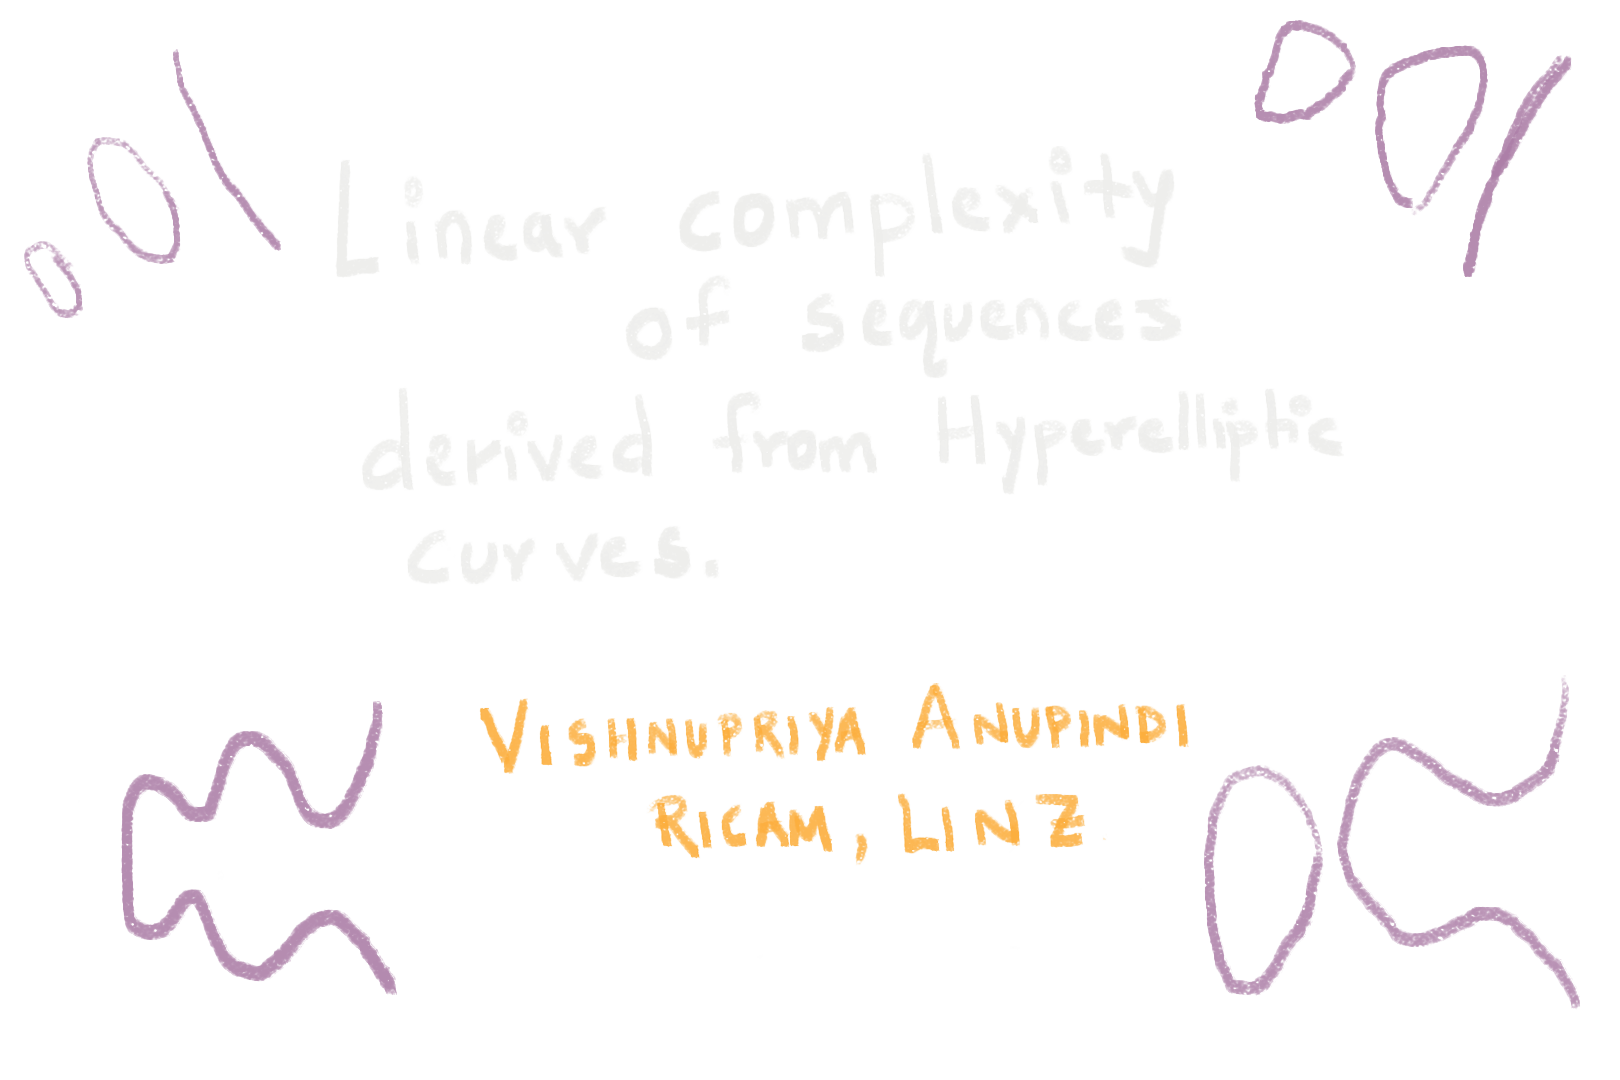 Linear complexity
of sequences
derived from Hyperelliptic
curves.
VISHNUPRIYA ANUPINDI
RICAM, LINZ